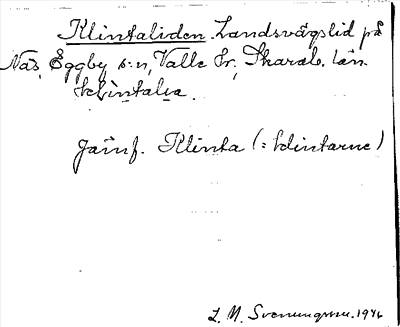 Klintaliden. Landsvägslid på
Näs, Eggby s:n, Valle hr, Skarab. län.
Jämf. Klinta (: klintarne)
L. M. Svenungsson. 1946